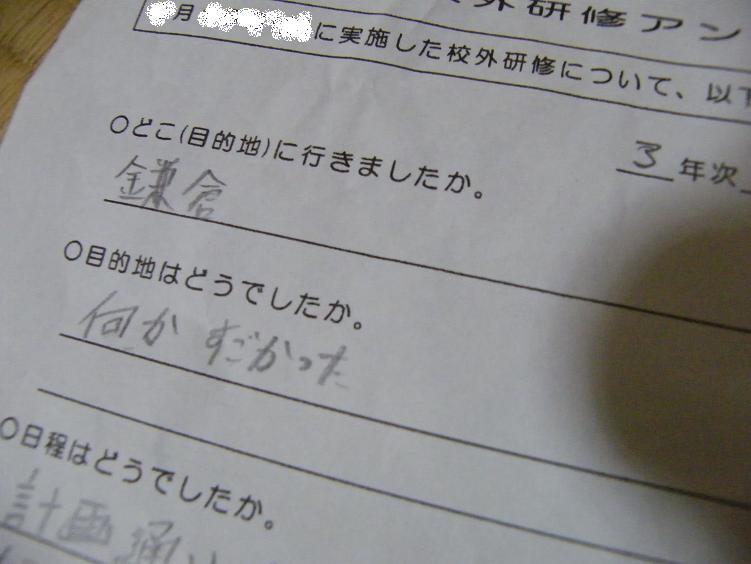 外研修アン
月 に実施した校外研修について、以下
3年次
○どこ(目的地)に行きましたか。
鎌倉
○目的地はどうでしたか。
何かすごかった
○日程はどうでしたか。
計画通り